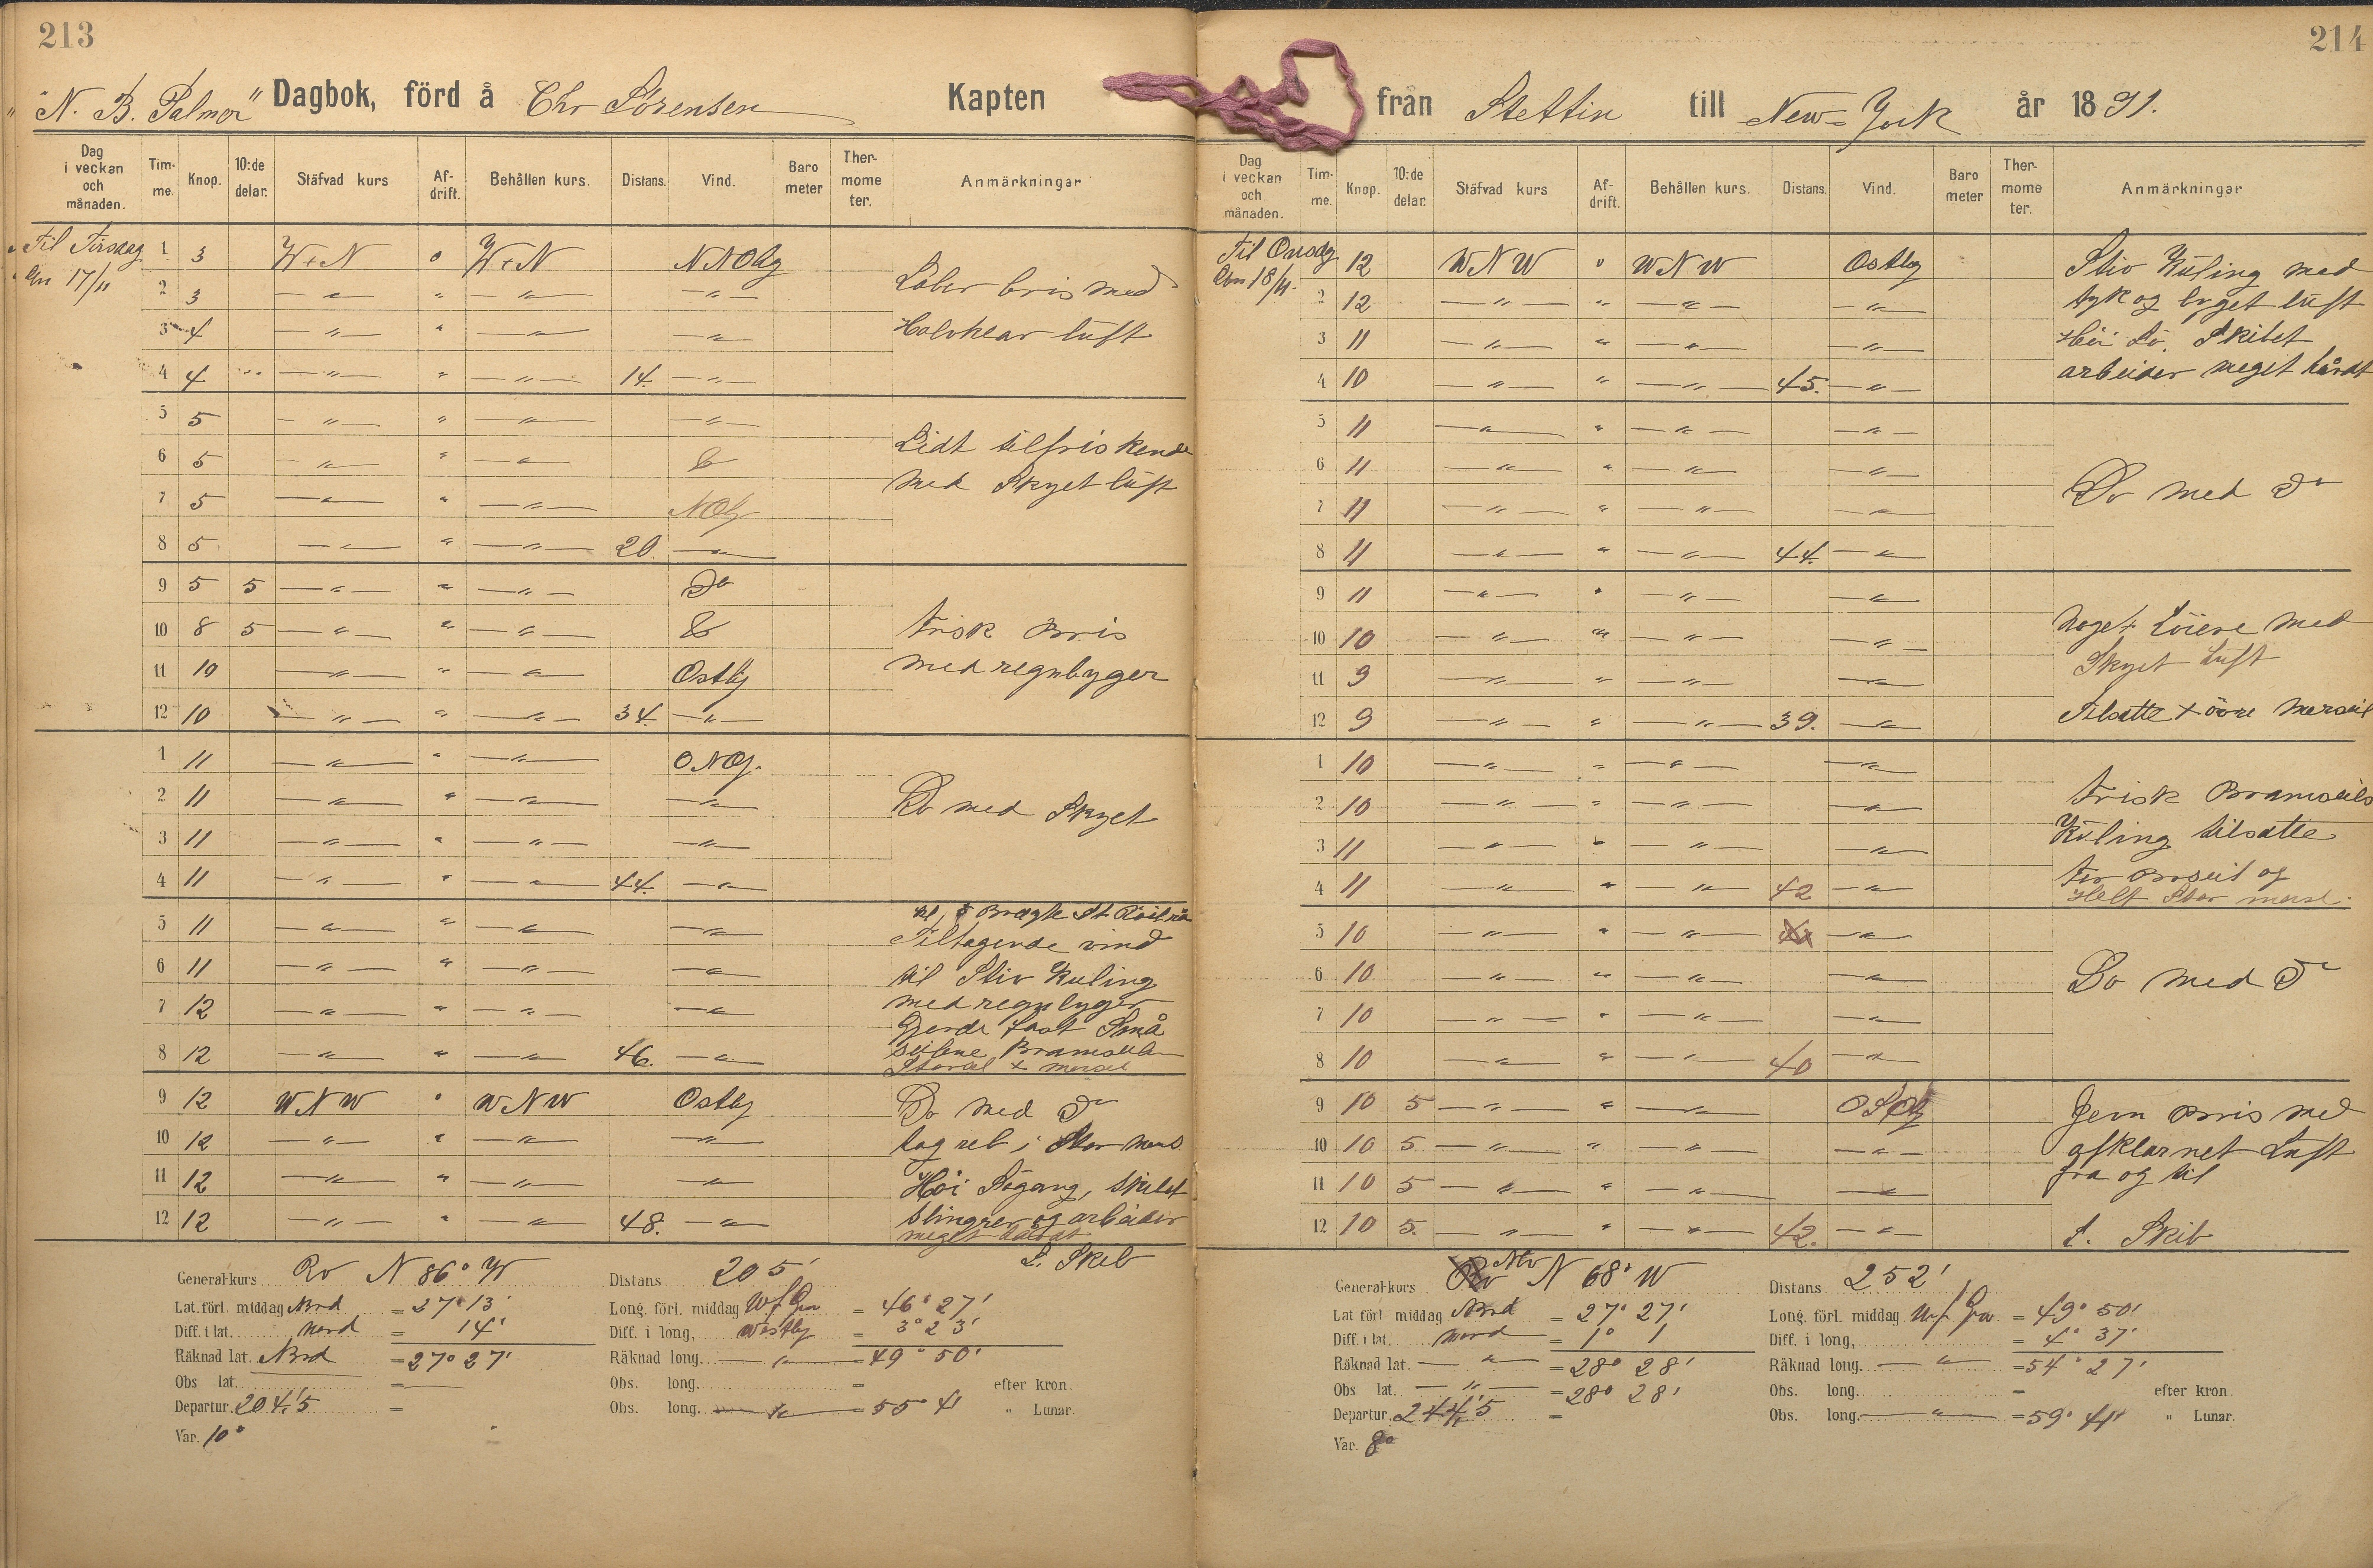 213
"N. B. Palmer" Dagbok, förd å Chr Sörensen Kapten
Dag i veckan och månaden. Tim-me. Knop. 10:de delar. Stäfvad kurs Af-drift. Behållen kurs. Distans. Vind. Baro meter Ther-mome ter. Anmärkningar
Til Tirsdag den 17/11
1 3 W t N o W t N NNOlg
2 3 — " — " — " — — " —
3 4 — " — " — " — — " —
4 4 " — " — " — " — 14. — " —
Laber bris med
Halvklar luft
5 5 — " — " — " — — " —
6 5 — " — " — " —
7 5 — " — " — " — NOlg
8 5 — " — " — " — 20 — " —
Lidt tilfriskende
med Skyet luft
9 5 5 — " — " — " — Do
10 8 5 — " — " — " —
11 10 — " — " — " — Ostlig
12 10 — " — " — " — 34. — " —
frisk Bris
med regnbyger
1 11 — " — " — " — ONOlg.
2 11 — " — " — " — — " —
3 11 — " — " — " — — " —
4 11 — " — " — " — 44. — " —
Do med Skyet
5 11 — " — " — " — — " —
6 11 — " — " — " — — " —
7 12 — " — " — " — — " —
8 12 — " — " — " — 46. — " —
Kl, 5 Bragte St
Tiltagende vind
til Stiv Kuling
med regnbyger
Gjorde fast Små
seilene Bramseilen
Storseil x mersseil
9 12 WNW o WNW Ostlig
10 12 — " — " — " — — " —
11 12 — " — " — " — — " —
12 12 — " — " — " — 48. — " —
Do med Do
tog reb i Stor mers
Höi Sögang, Skibet
Slingrer og arbeider
meget hårdt
L. Skib
General-kurs Rv N 86° W Distans 205'
Lat. förl. middag Nord = 27° 13' Long. förl. middag W f Gr = 46° 27'
Diff. i lat. Nord = 14' Diff. i long, Westlig = 3° 23'
Räknad lat. Nord = 27° 27' Räknad long. — " — = 49° 50'
Obs lat. = — Obs. long. = efter kron.
Departur. 204'5 = Obs. long. — " — = 55° 41 " Lunar.
Var. 10°
214
från Stettin till New-York år 1891.
Dag i veckan och månaden. Tim-me. Knop. 10:de delar. Stäfvad kurs Af-drift. Behållen kurs. Distans. Vind. Baro meter Ther-mome ter. Anmärkningar
Til Onsdg den 18/11.
12 WNW o WNW Ostlig
2 12 — " — " — " — — " —
3 11 — " — " — " — — " —
4 10 — " — " — " — 45. — " —
Stiv Kuling med
tyk og byget luft
Höi Sö. Skibet
arbeider meget hårdt
5 11 — " — " — " — — " —
6 11 — " — " — " — — " —
7 11 — " — " — " — — " —
8 11 — " — " — " — 44. — " —
Do med Do
9 11 — " — " — " — — " —
10 10 — " — " — " — — " —
11 9 — " — " — " — — " —
12 9 — " — " — " — 39. — " —
Noget Löiere med
Skyet luft
Tilsatte x övre Merseil
1 10 — " — " — " — — " —
2 10 — " — " — " — — " —
3 11 — " — " — " — — " —
4 11 — " — " — " — 42 — " —
frisk Bramseils
Kuling tilsatte
og
Helt Stor mersl.
5 10 — " — " — " — — " —
6 10 — " — " — " — — " —
7 10 — " — " — " — — " —
8 10 — " — " — " — 40 — " —
Do med Do
9 10 5 — " — " — " — OSOlg
10 10 5 — " — " — " — — " —
11 10 5 — " — " — " — — " —
12 10 5. — " — " — " — 42. — " —
Jevn Bris med
afklarnet Luft
fra og til
L. Skib
General-kurs Rv N 68° W Distans 252'
Lat förl middag Nord = 27° 27' Long. förl. middag W f Gr = 49° 50'
Diff. i lat. Nord = 1° 1 Diff. i long, = 4° 37'
Räknad lat. — " — = 28° 28' Räknad long. — " — = 54° 27'
Obs lat. — " — = 28° 28' Obs. long. = efter kron.
Departur. 244'5 = Obs. long. — " — = 59° 41' " Lunar.
Var. 8°